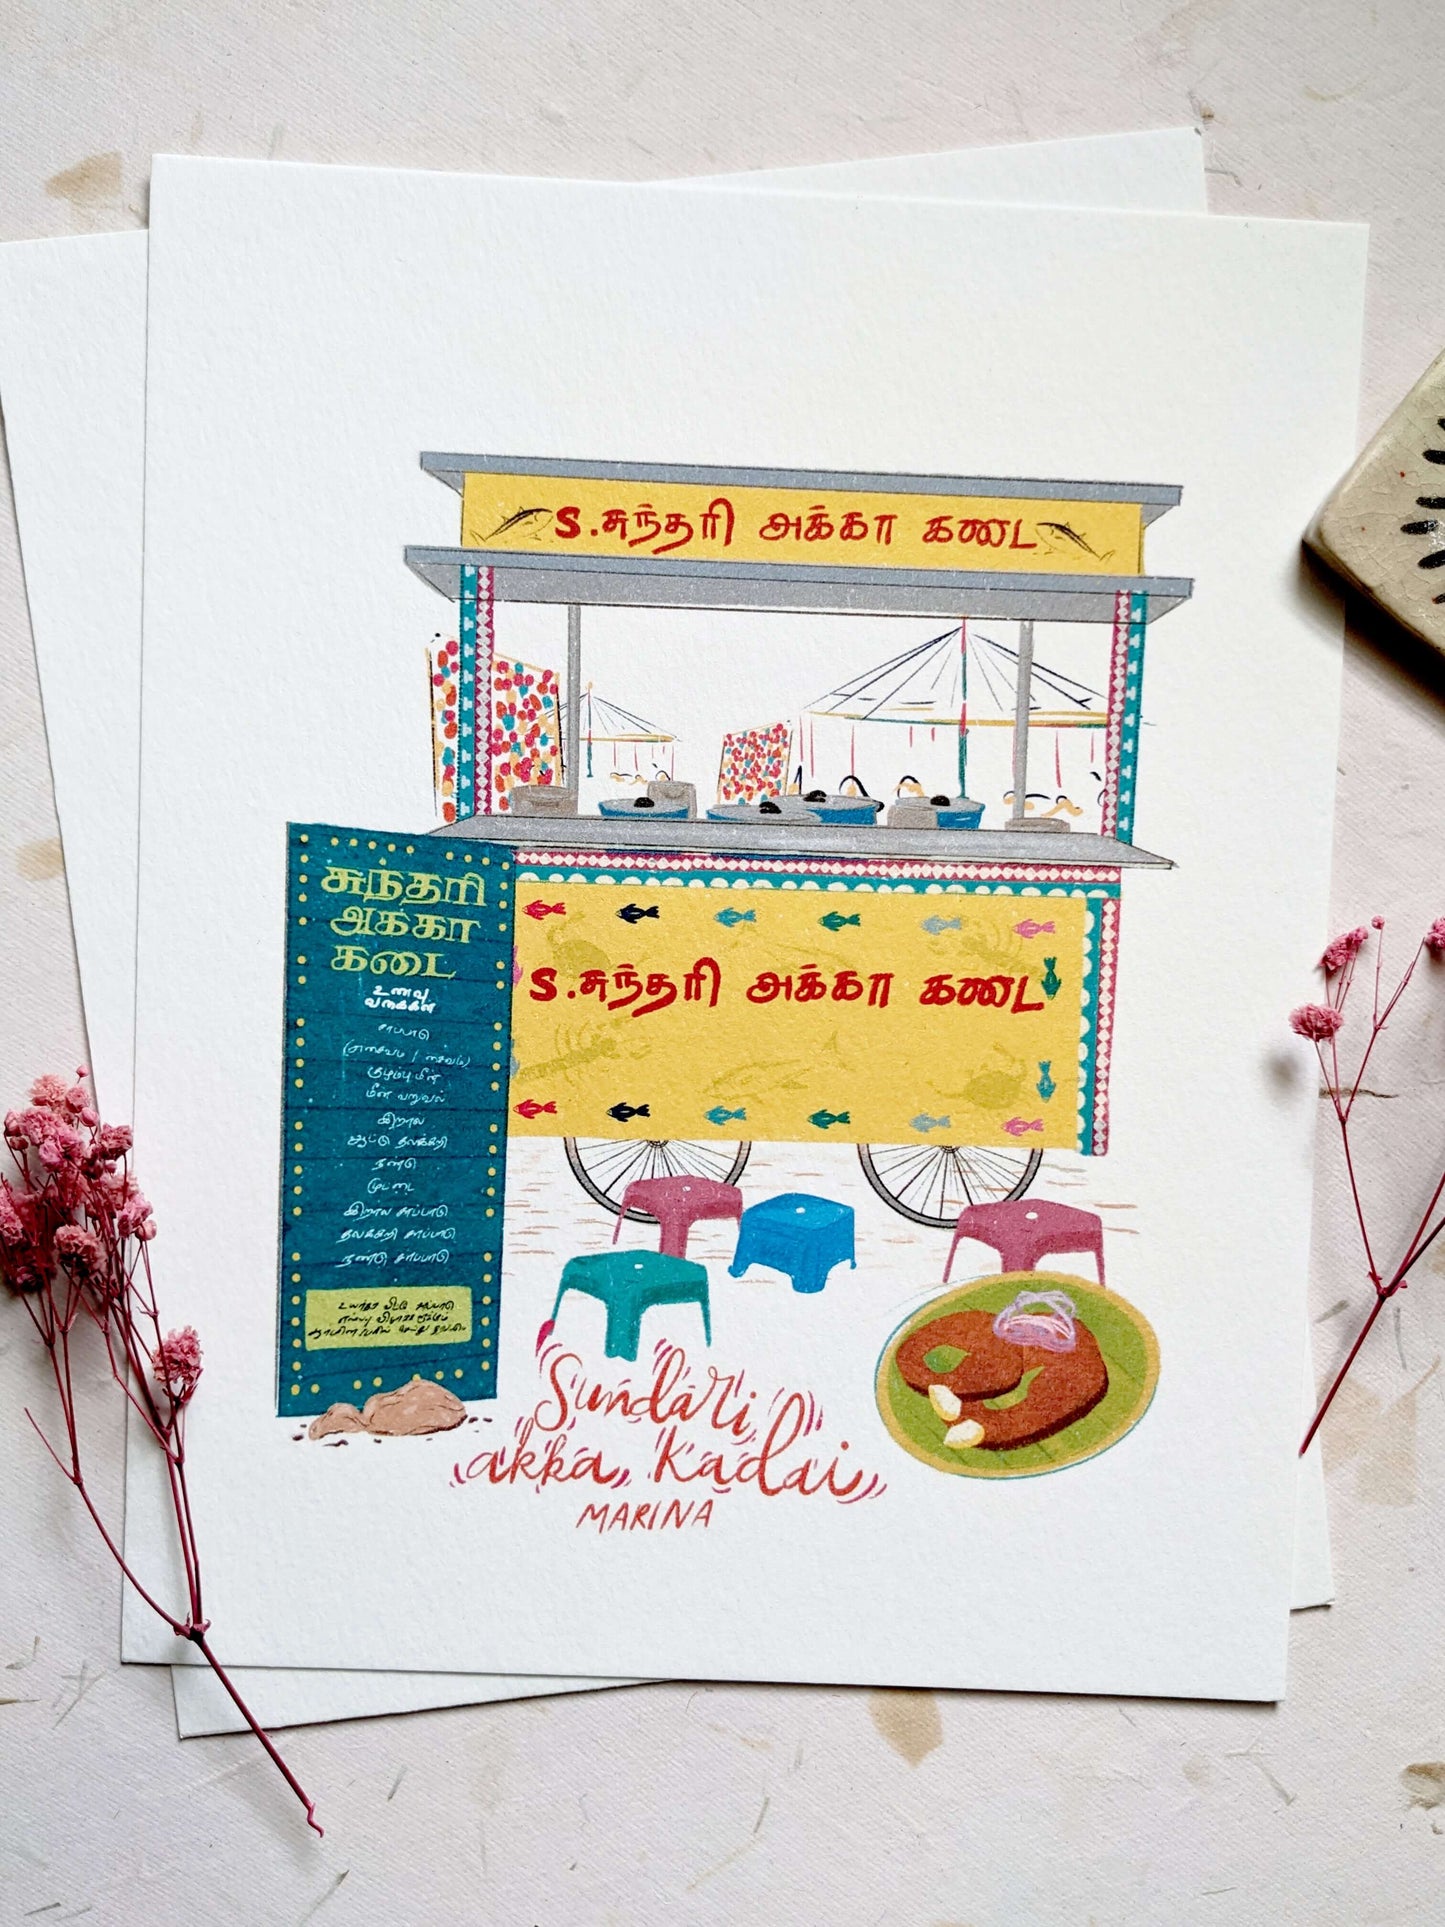 S.சுந்தரி அக்கா கடை
சுந்தரி
அக்கா
கடை
உணவு
வகைகள்
சாப்பாடு
(அசைவம் / சைவம்)
குழம்பு மீன்
மீன் வறுவல்
இறால்
ஆட்டு தலக்கறி
நண்டு
முட்டை
இறால் சாப்பாடு
தலக்கறி சாப்பாடு
நண்டு சாப்பாடு
S.சுந்தரி அக்கா கடை
Sundari
akka Kadai
MARINA